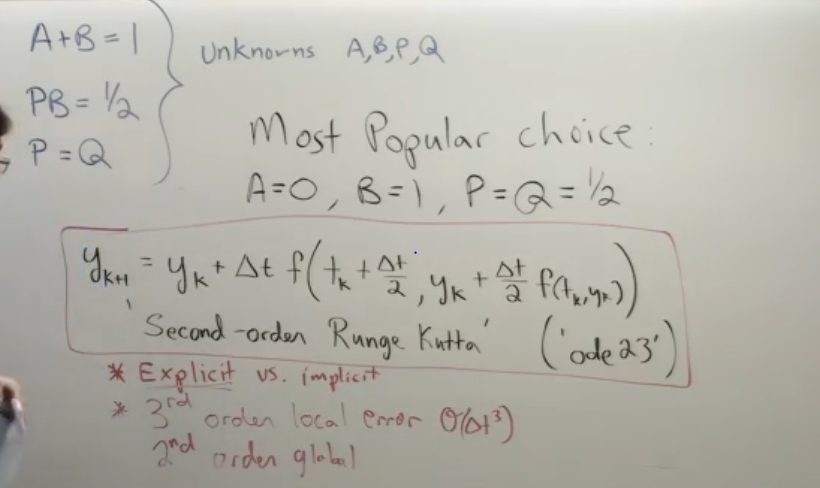 A+B=1
PB=1/2
P=Q
Unknowns A,B,P,Q
Most Popular choice:
A=0, B=1, P=Q=1/2
y_{k+1} = y_k + Δt f(t_k + Δt/2, y_k + Δt/2 f(t_k,y_k))
'Second-order Runge Kutta' ('ode23')
* Explicit vs. implicit
* 3rd order local error O(Δt³)
2nd order global